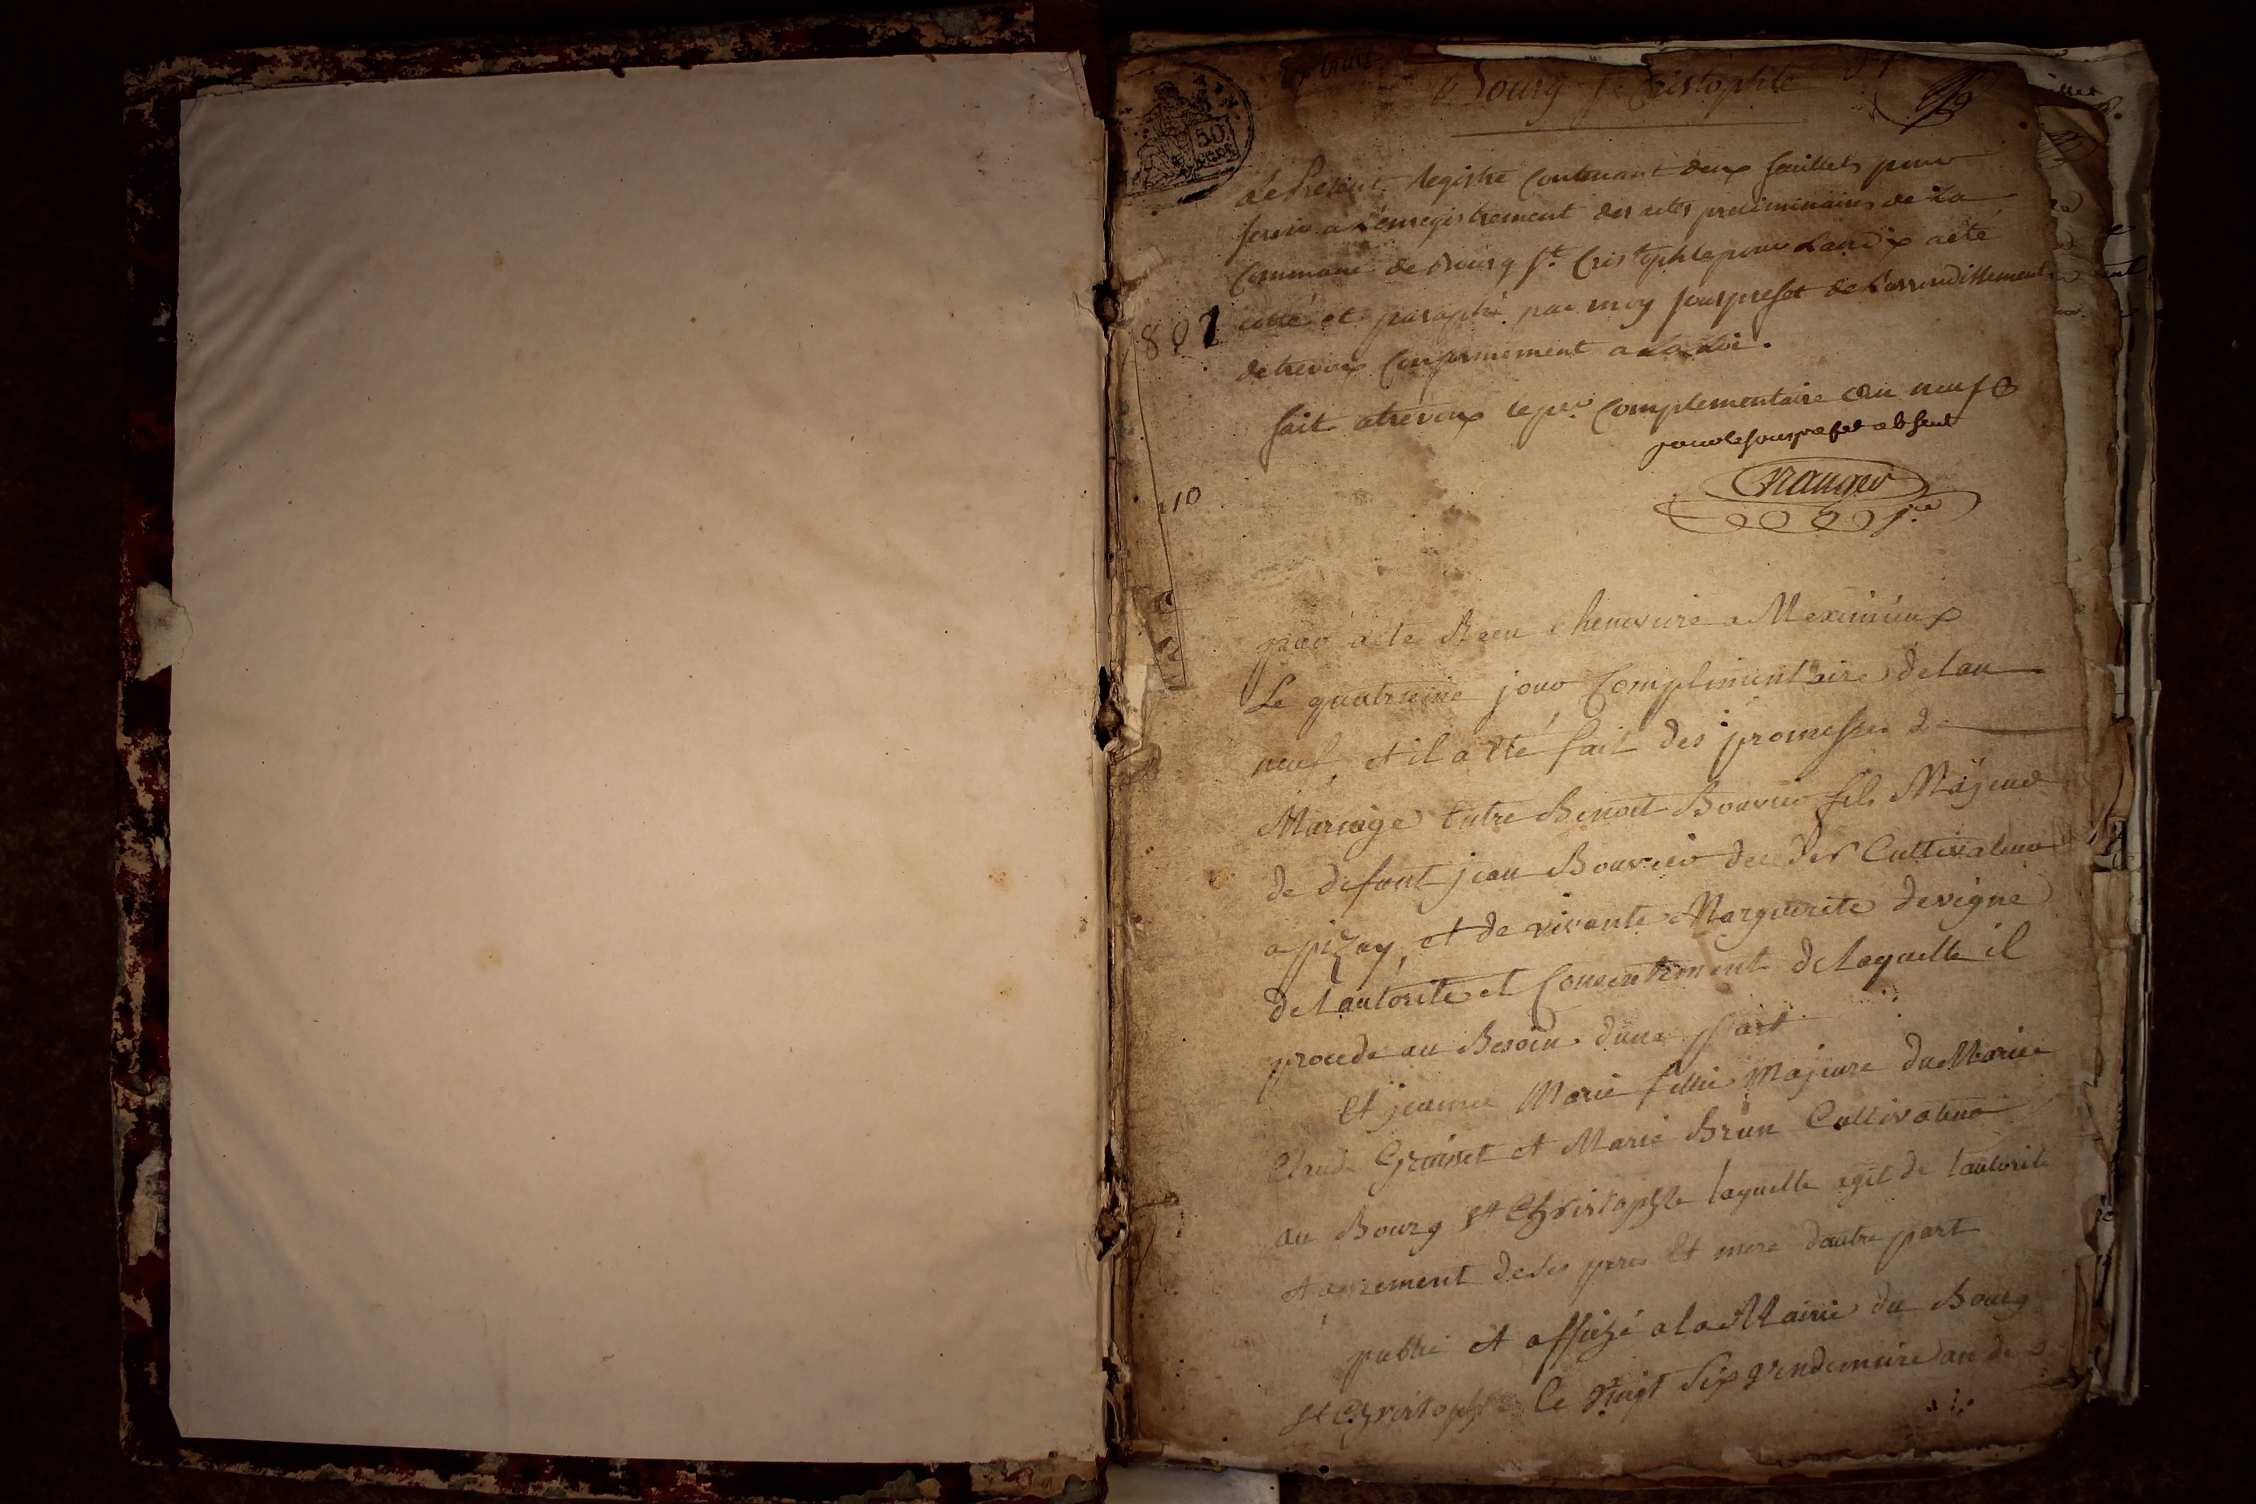 Bourg St Cristophle
50
CENT
Le Présent Registre Contenant deux feuillets pour
servir a L'enregistrement des actes preliminaires de La
Commune de Bourg St. Cristophle pour Lan dix a eté
cotté et paraphé par moy souspréfet de L'arrondissement
de trevoux Conformement a La Loi.
fait a trevoux le per Complementaire an neuf
pour le souspréfet absent
802
10
par acte Recu chenevière a Meximieux
Le quatrieme jour Complimentaire de lan
neuf, et il a été fait des promesses de
Mariage Entre Benoit Bouvier fils Majeur
de defunt jean Bouvier Cultivateur
a pizay, et de vivante Marguerite devigne
de l autorité et Consentement de laquelle il
procede au Besoin dune part
Et jeanne Marie fille Majeure du Marie
Claude Groinet et Marie Brun Cultivateur
au Bourg St Christophle laquelle agit de l'autorité
et agrement de ses pere Et mere dautre part
publié et affiché a la Mairie du Bourg
St Christophle Le Vingt Six Vendemiaire an